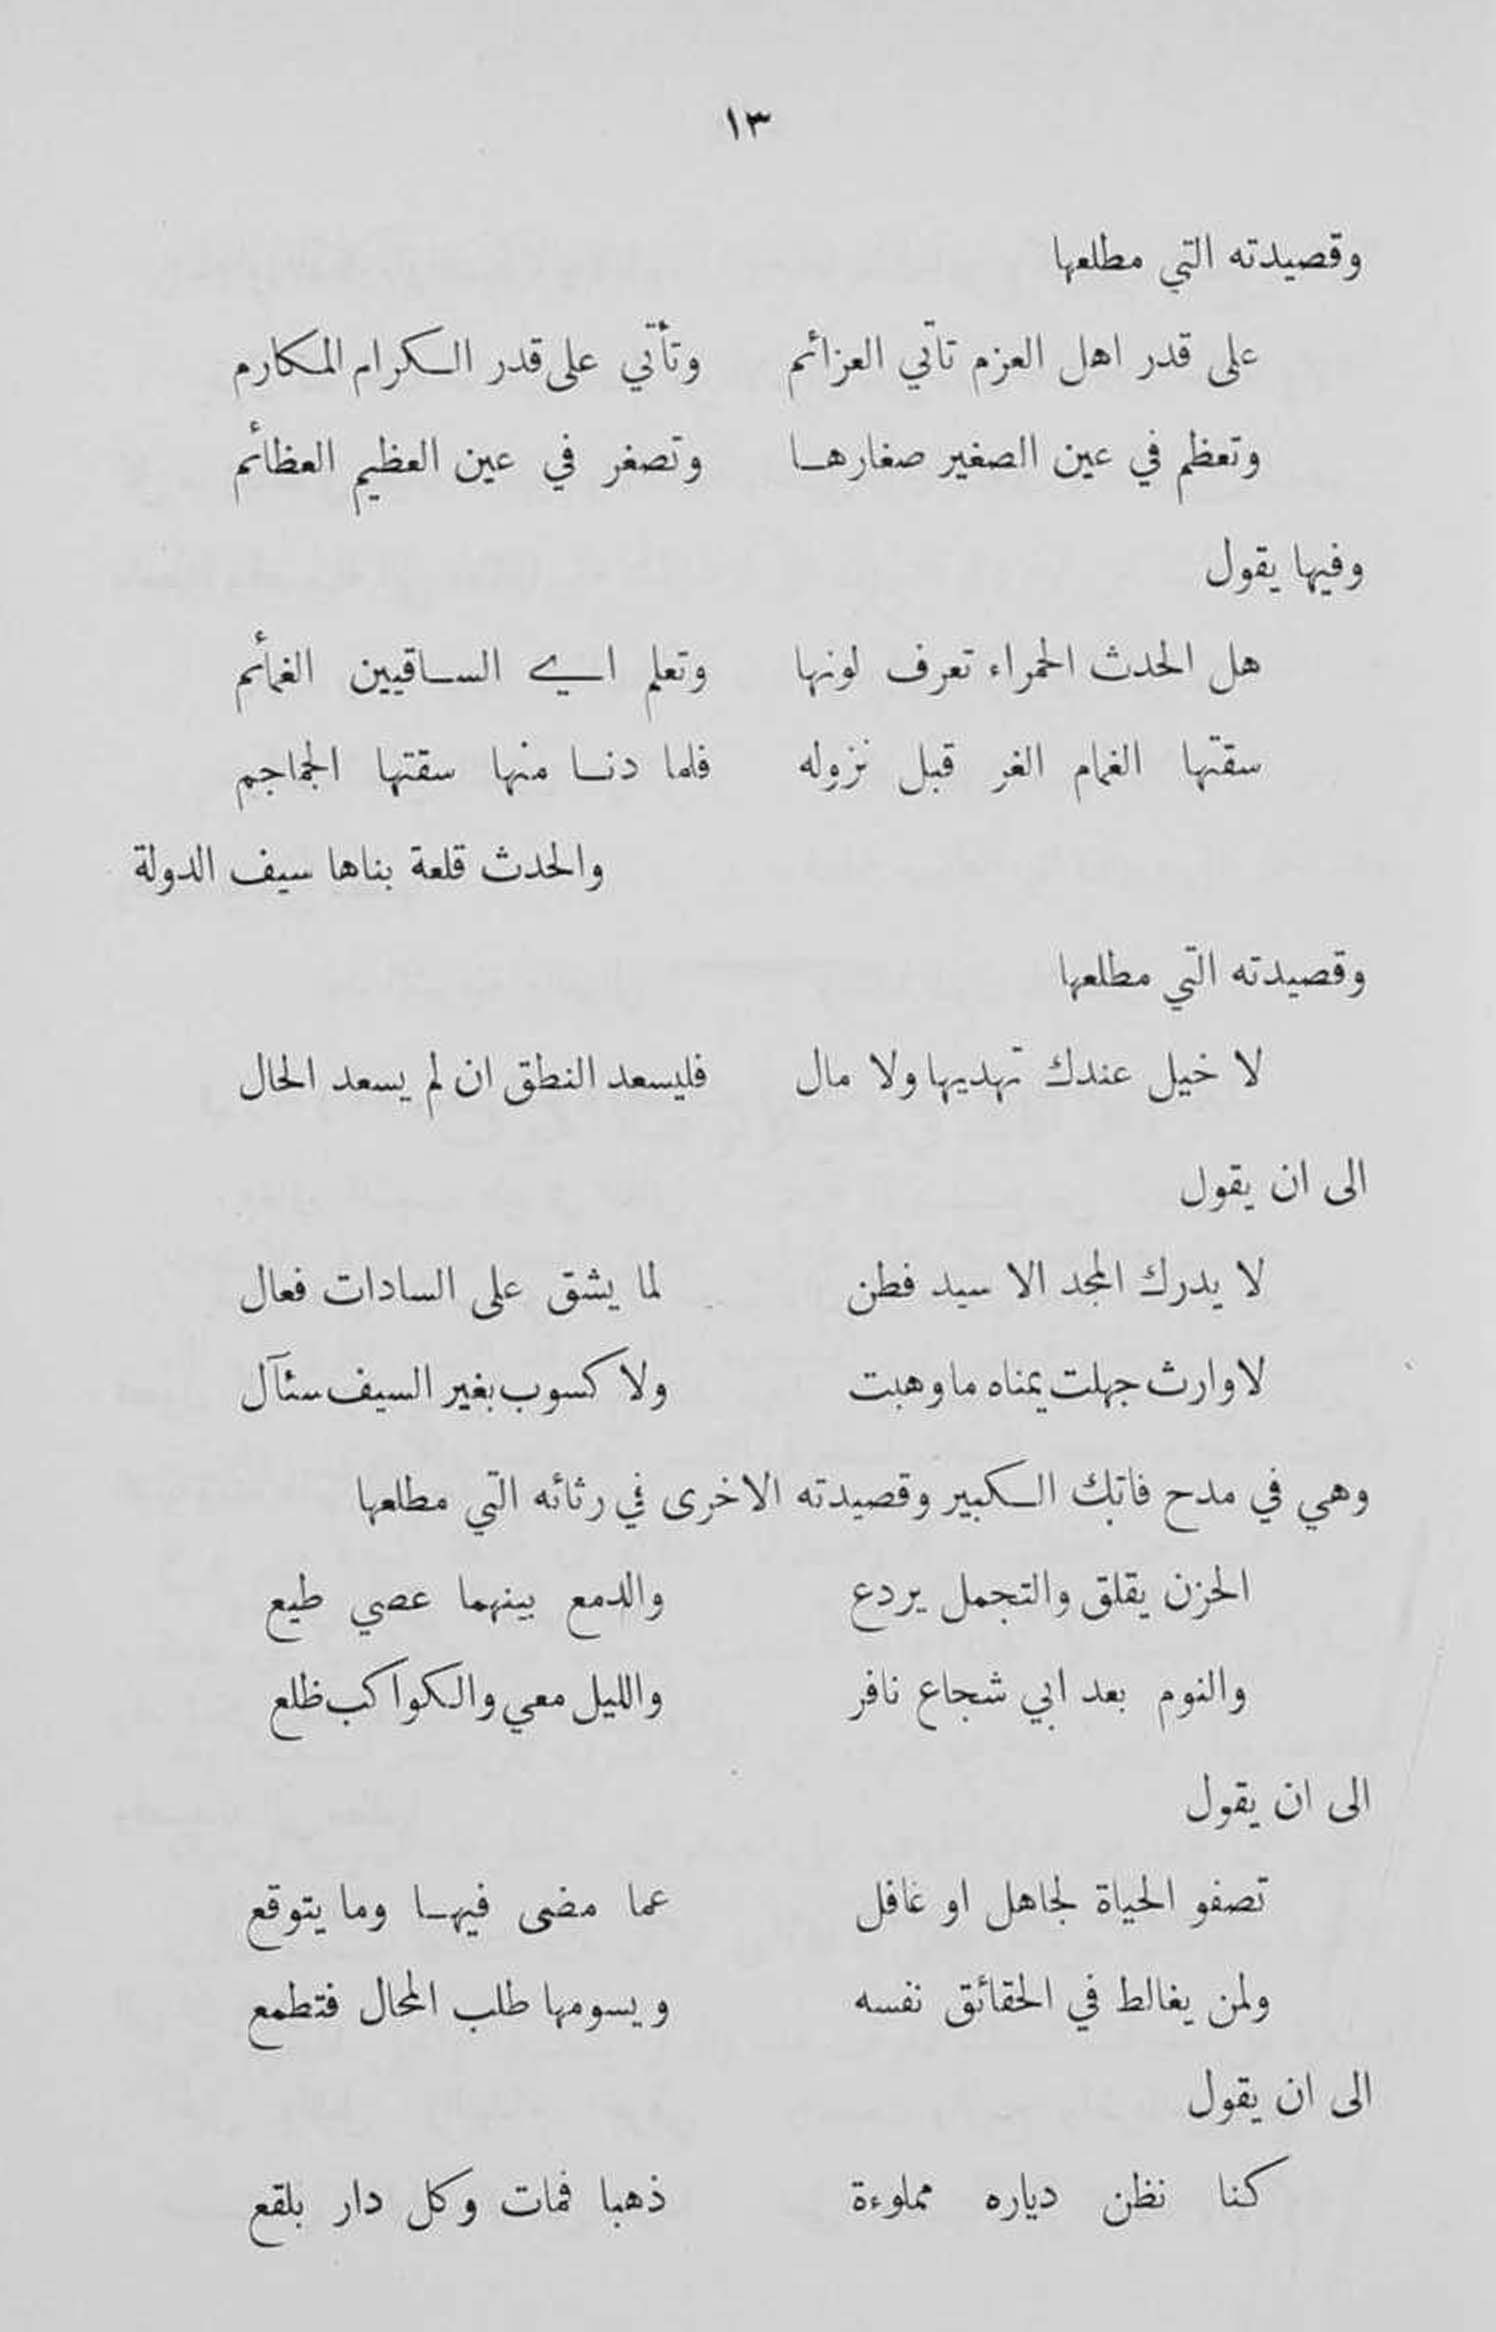 ١٣
وقصيدته التي مطلعها
على قدر اهل العزم تأتي العزائم وتأتي على قدر الكرام المكارم
وتعظم في عين الصغير صغارها وتصغر في عين العظيم العظائم
وفيها يقول
هل الحدث الحمراء تعرف لونها وتعلم اي الساقيين الغمائم
سقتها الغمام الغر قبل نزوله فلما دنا منها سقتها الجماجم
والحدث قلعة بناها سيف الدولة
وقصيدته التي مطلعها
لا خيل عندك تهديها ولا مال فليسعد النطق ان لم يسعد الحال
الى ان يقول
لا يدرك المجد الا سيد فطن لما يشق على السادات فعال
لا وارث جهلت يمناه ما وهبت ولا كسوب بغير السيف سئآل
وهي في مدح فاتك الكبير وقصيدته الاخرى في رثائه التي مطلعها
الحزن يقلق والتجمل يردع والدمع بينهما عصي طيع
والنوم بعد ابي شجاع نافر والليل معي والكواكب ظلع
الى ان يقول
تصفو الحياة لجاهل او غافل عما مضى فيها وما يتوقع
ولمن يغالط في الحقائق نفسه ويسومها طلب المحال فتطمع
الى ان يقول
كنا نظن دياره مملوءة ذهبا فمات وكل دار بلقع